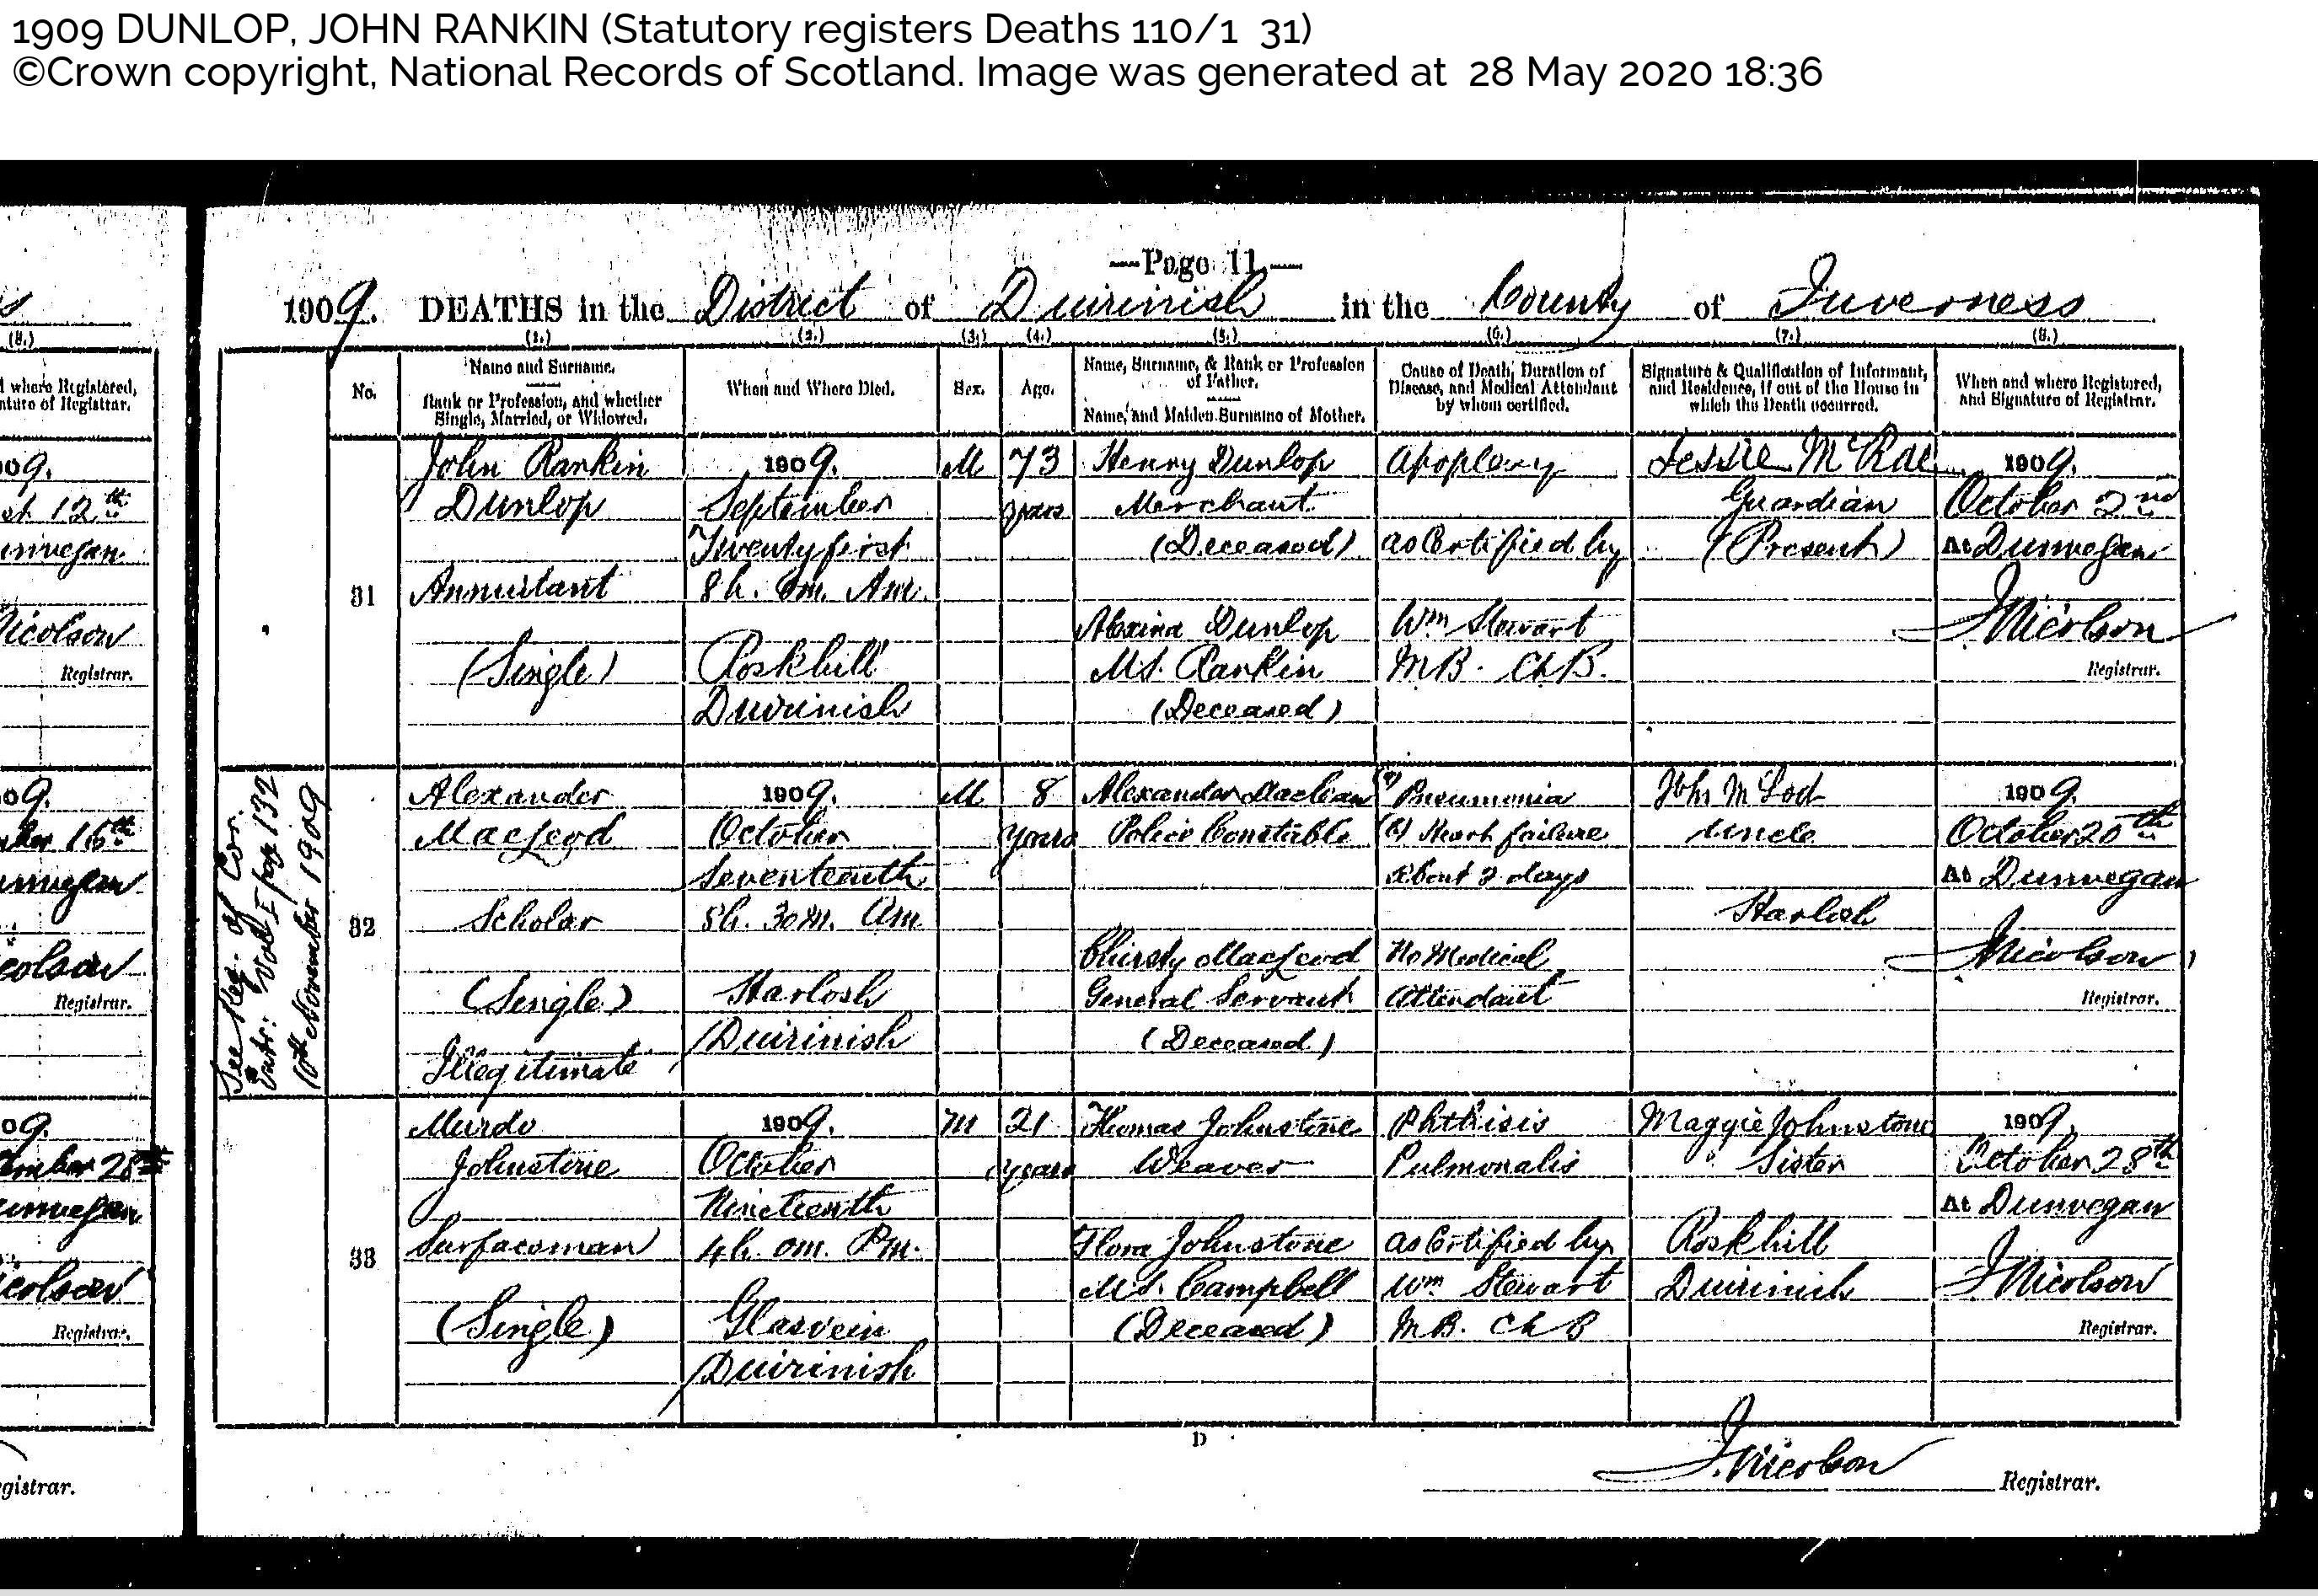 1909 DUNLOP, JOHN RANKIN (Statutory registers Deaths 110/1 31)
©Crown copyright, National Records of Scotland. Image was generated at 28 May 2020 18:36
—Page 11—
1909. DEATHS in the District of Duirinish in the County of Inverness
(1.) (2.) (3.) (4.) (5.) (6.) (7.) (8.)
No.
Name and Surname.
Rank or Profession, and whether
Single, Married, or Widowed.
When and Where Died.
Sex.
Age.
Name, Surname, & Rank or Profession
of Father.
Name, and Maiden Surname of Mother.
Cause of Death, Duration of
Disease, and Medical Attendant
by whom certified.
Signature & Qualification of Informant,
and Residence, if out of the House in
which the Death occurred.
When and where Registered,
and Signature of Registrar.
31
John Rankin
Dunlop
Annuitant
(Single)
1909.
September
Twenty first
8h. 0m. Am.
Roskhill
Duirinish
M
73
years
Henry Dunlop
Merchant
(Deceased)
Alexina Dunlop
M.S. Rankin
(Deceased)
Apoplexy
as Certified by
Wm Stewart
M.B. Ch.B.
Jessie McRae
Guardian
(Present)
1909.
October 2nd
At Dunvegan
J Nicolson
Registrar.
See Reg. of Cor.
Entr: Vol I page 132
10th November 1909
32
Alexander
MacLeod
Scholar
(Single)
Illegitimate
1909.
October
Seventeenth
8h. 30m. Am
Harlosh
Duirinish
M
8
years
Alexander Maclean
Police Constable
Chirsty MacLeod
General Servant
(Deceased)
Pneumonia
Heart failure
about 2 days
No Medical
Attendant
John McLod
Uncle
Harlosh
1909.
October 20th
At Dunvegan
J Nicolson
Registrar.
33
Murdo
Johnstone
Surfaceman
(Single)
1909.
October
Nineteenth
4h. 0m. Pm.
Glasvein
Duirinish
M
21
years
Thomas Johnstone
Weaver
Flora Johnstone
M.S. Campbell
(Deceased)
Phthisis
Pulmonalis
as Certified by
Wm Stewart
M.B. Ch B
Maggie Johnstone
Sister
Roskhill
Duirinish
1909.
October 28th
At Dunvegan
J Nicolson
Registrar.
D
J. Nicolson Registrar.